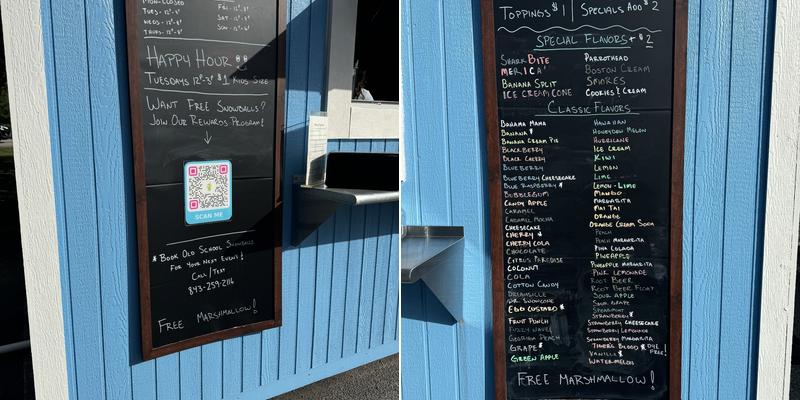 MON- CLOSED
TUES- 12⁰-8⁰
WEDS- 12⁰-8⁰
THURS- 12⁰-8⁰
FRI- 12⁰-9⁰
SAT- 12⁰-9⁰
SUN- 12⁰-6⁰
HAPPY HOUR
TUESDAYS 12⁰-3⁰ $1 KIDS SIZE
WANT FREE SNOWBALLS?
JOIN OUR REWARDS PROGRAM!
SCAN ME
* BOOK OLD SCHOOL SNOWBALLS
FOR YOUR NEXT EVENT!
CALL/TEXT
843-259-2116
FREE MARSHMALLOW!
TOPPINGS $1 | SPECIALS ADD $2
SPECIAL FLAVORS + $2
SHARK BITE
MERICA'
BANANA SPLIT
ICE CREAM CONE
PARROTHEAD
BOSTON CREAM
SMORES
COOKIES & CREAM
CLASSIC FLAVORS
BAHAMA MAMA
BANANA *
BANANA CREAM PIE
BLACKBERRY
BLACK CHERRY
BLUEBERRY
BLUEBERRY CHEESECAKE
BLUE RASPBERRY *
BUBBLEGUM
CANDY APPLE
CARAMEL
CARAMEL MOCHA
CHEESECAKE
CHERRY *
CHERRY COLA
CHOCOLATE
CITRUS PARADISE
COCONUT
COLA
COTTON CANDY
DREAMSICLE
DR. SNOWCONE
EGG CUSTARD *
FRUIT PUNCH
FUZZY NAVEL
GEORGIA PEACH
GRAPE *
GREEN APPLE
HAWAIIAN
HONEYDEW MELON
HURRICANE
ICE CREAM
KIWI
LEMON
LIME
LEMON-LIME
MANGO
MARGARITA
MAI TAI
ORANGE
ORANGE CREAM SODA
PEACH
PEACH MARGARITA
PINA COLADA
PINEAPPLE
PINEAPPLE MARGARITA
PINK LEMONADE
ROOT BEER
ROOT BEER FLOAT
SOUR APPLE
SOUR GRAPE
SPEARMINT
STRAWBERRY *
STRAWBERRY CHEESECAKE
STRAWBERRY LEMONADE
STRAWBERRY MARGARITA
TIGER'S BLOOD
VANILLA *
WATERMELON
* DYE FREE!
FREE MARSHMALLOW!